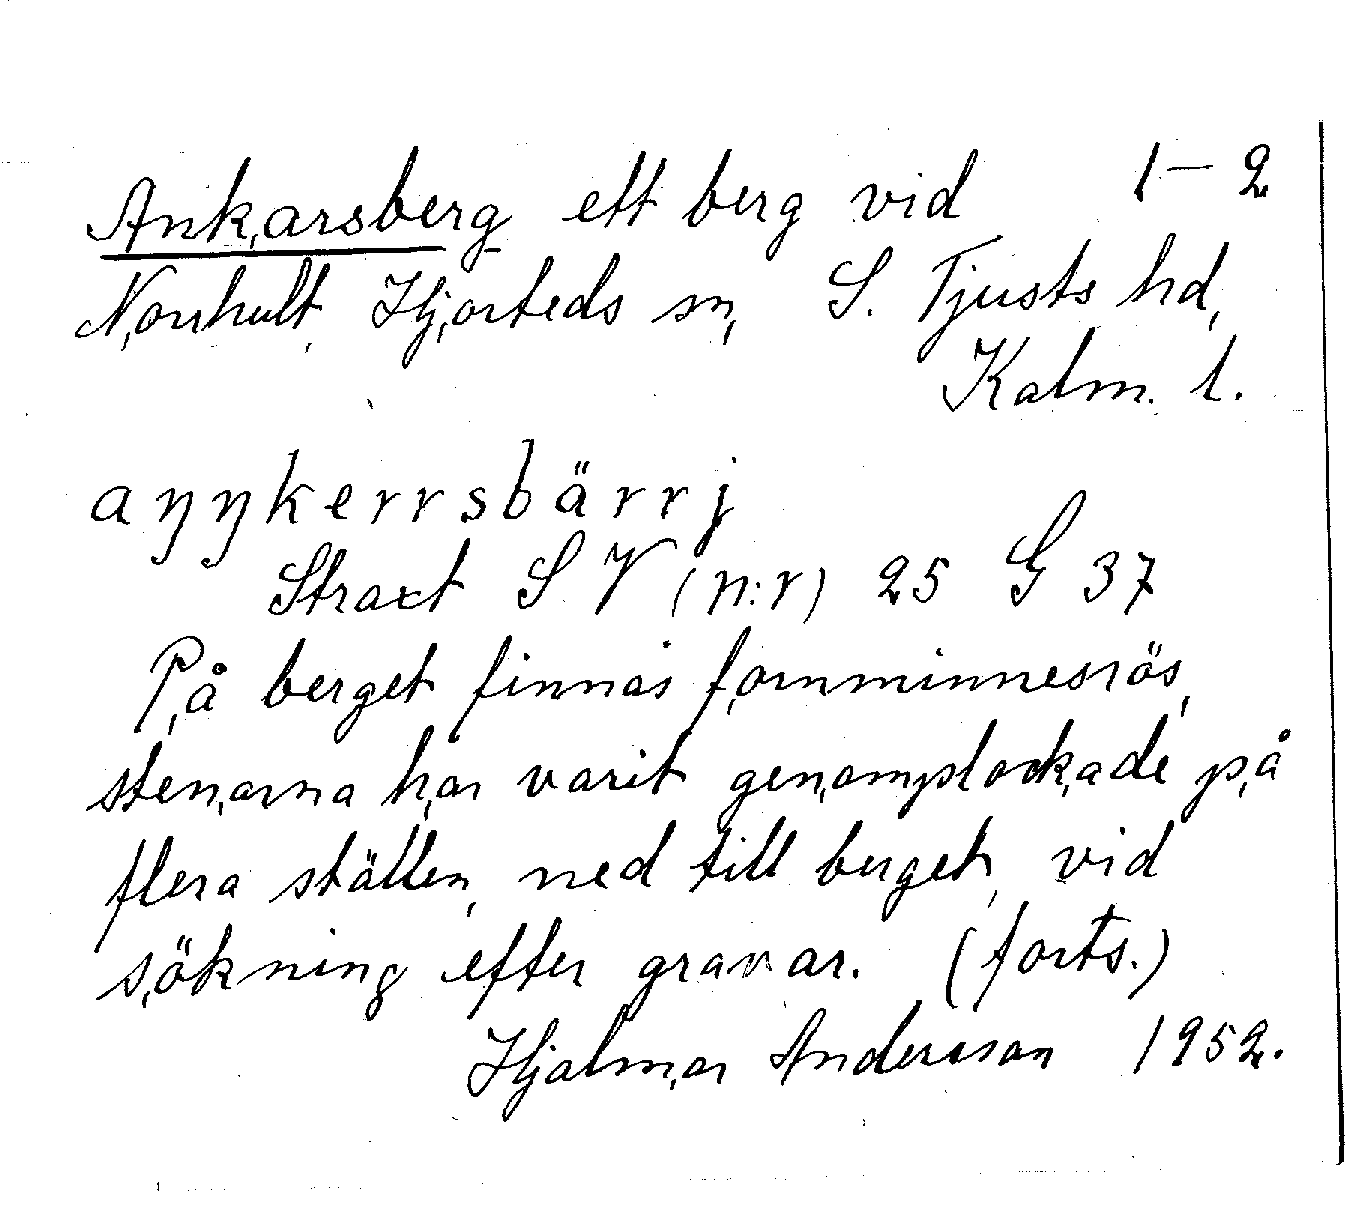 Ankarsberg ett berg vid 1-2
Norrhult, Hjorteds sn, S. Tjusts hd,
Kalm. l.
aŋŋkerrsbärrj
Straxt S V (n:r) 25 G 37
På berget finnas fornminnesrös,
stenarna har varit genomplockade på
flera ställen, ned till berget, vid
sökning efter gravar. (forts.)
Hjalmar Andersson 1952.